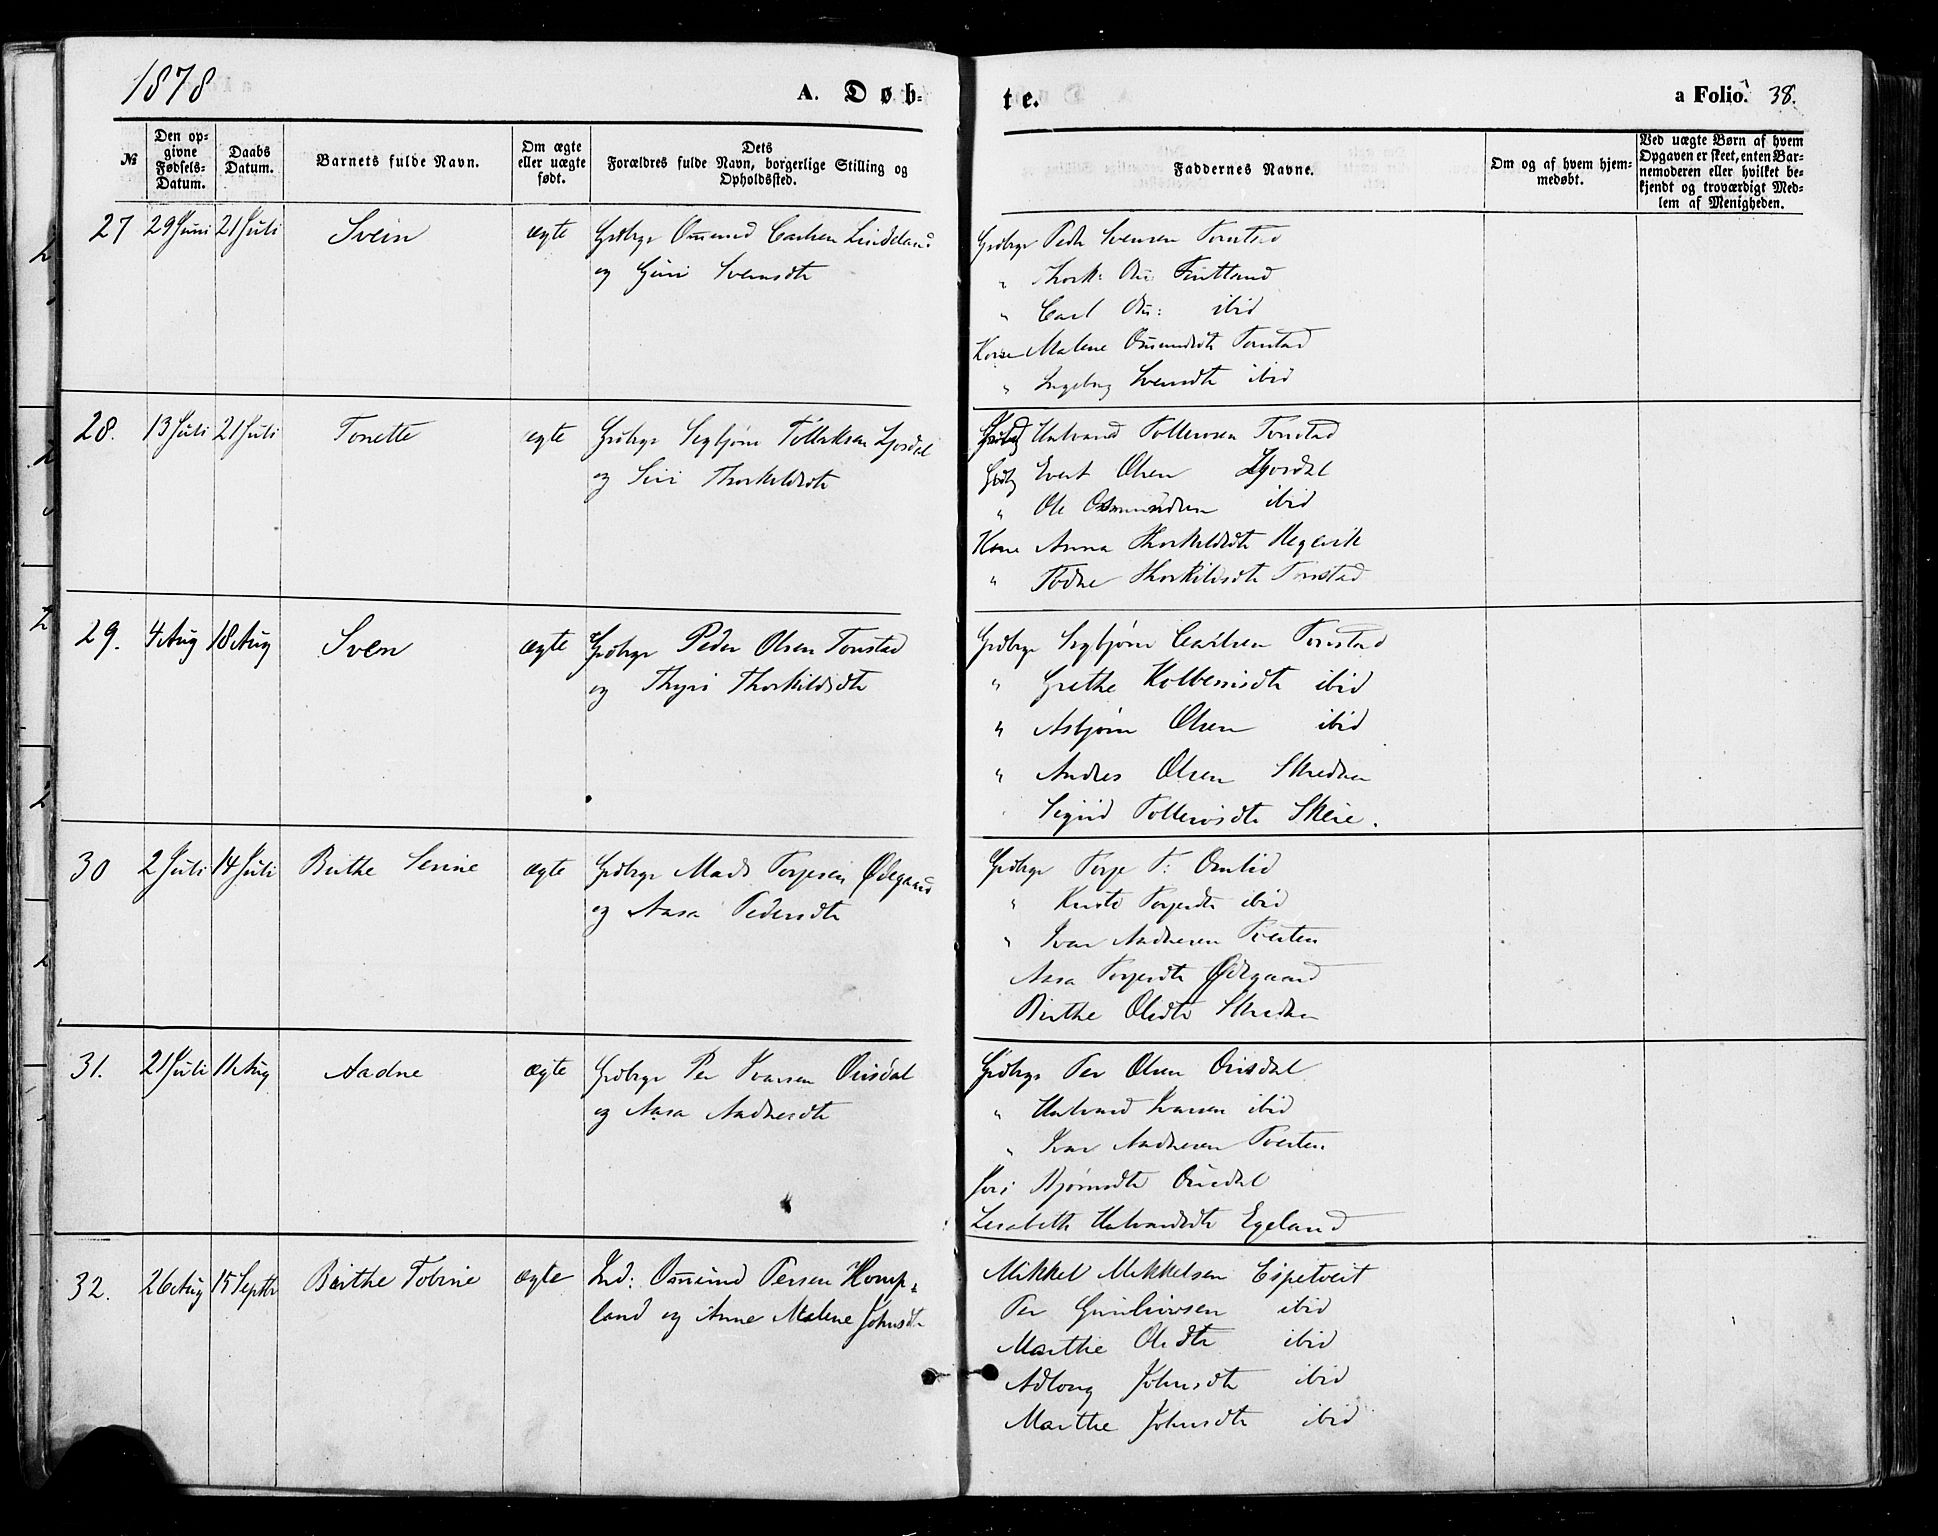 1878
A. Døb-
te.
a Folio. 38.
№
Den op-
givne
Fødsels-
Datum.
Daabs
Datum.
Barnets fulde Navn.
Om ægte
eller uægte
født.
Dets
Forældres fulde Navn, borgerlige Stilling og
Opholdssted.
Faddernes Navne.
Om og af hvem hjem-
medøbt.
Ved uægte Børn af hvem
Opgaven er skeet, enten Bar-
nemoderen eller hvilket be-
kjendt og troværdigt Med-
lem af Menigheden.
27 29 Juni 21 Juli Svein ægte Grdbrgr Omund Carlsen Lindeland
og Guri Svensdtr
Grdbrgr Peder Svensen Tonstad
" Thork: Om: Fintland
" Carl Om: ibid
Kone Malene Omundsdtr Tonstad
" Ingeborg Svensdtr ibid
28. 13 Juli 21 Juli Tonette ægte Grdbrgr Sigbjørn Tollaksen Josdal
og Siri Thorkildsdtr
Halvard Tollevsen Tonstad
Grdbr Evert Olsen Josdal
" Ole Osmundsen ibid
Kone Anna Thorkildsdtr Hegevik
" Thorkildsdtr Tonstad
29. 4 Aug 18 Aug Sven ægte Grdbrgr Peder Olsen Tonstad
og Thyri Thorkildsdtr
Grdbrgr Sigbjørn Carlsen Tonstad
" Grethe Kolbensdtr ibid
" Asbjørn Olsen ibid
" Andres Olsen Skreden
Sigrid Tollevsdtr Skeie.
30 2 Juli 14 Juli Birthe Serine ægte Grdbrgr Mads Torjesen Ødegaard
og Aasa Pedersdtr
Grdbrgr Torje T: Omlid
" Torjesdtr ibid
" Ivar Aadnesen Tveiten
Aasa Torjesdtr Ødegaard
Birthe Olsdtr Skreden
31. 21 Juli 11 Aug Aadne ægte Grdbrgr Per Ivarsen Ousdal
og Aasa Aadnesdtr
Grdbrgr Per Olsen Ousdal
" Halvard Ivarsen ibid
" Ivar Aadnesen Tveiten.
Siri Bjørnsdtr Ousdal
Lisabeth Halvardsdtr Egeland
32. 26 Aug 15 Septbr Birthe Tobine ægte Ind: Omund Persen Homp-
land og Anne Malene Johnsdtr
Mikkel Mikkelsen Espetveit
Per Gunleivsen ibid
Marthe Olsdtr ibid
Adlong Johnsdtr ibid
Marthe Johnsdtr ibid